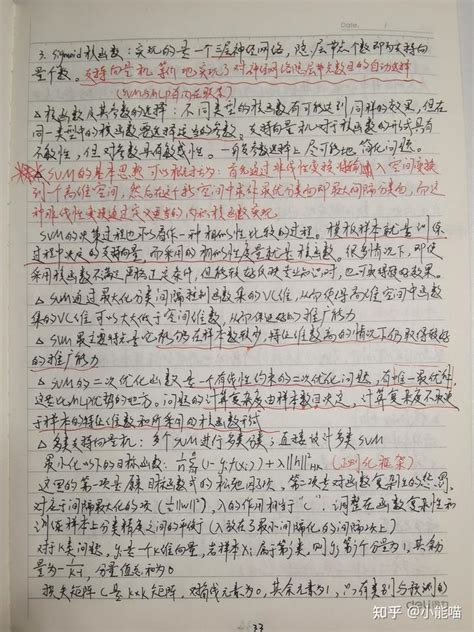 Date.
3. Sigmoid核函数：实现的是一个三层神经网络，隐层节点个数即为支持向
量个数。支持向量机等价地实现了对神经网络隐层节点数目的自动选择
(SVM与MLP有内在联系)
△ 核函数及其参数的选择：不同类型的核函数有可能达到同样的效果，但在
同一类型中的核函数要选择适当的参数。支持向量机对于核函数的形式具有
不敏性，但对参数具有敏感性。一般参数选择上尽可能地简化问题。
△ SVM的基本思想可以概括为：首先通过非线性变换将输入空间变换
到一个高维空间，然后在这个新空间中求解最优分类面即最大间隔分类面，而这
种非线性变换通过定义适当的内积核函数实现。
SVM的决策过程也可以看作一种相似性比较的过程。模板样本就是训练
过程中决定的支持向量，而采用的相似性度量就是核函数。很多情况下，即使
采用核函数不满足正定条件，但能较好反映专业知识时，也可取得好的效果。
△ SVM通过最大化分类间隔控制函数集的VC维，从而使得高维空间中函数
集的VC维可以大大低于空间维数，从而保证好的推广能力
△ SVM最主要特点是它能够在样本数较少，特征维数高的情况下仍取得较好
的推广能力
△ SVM的二次优化函数是一个有线性约束的二次优化问题，有唯一最优解
这是比MLP优势的地方。问题的计算复杂度由样本数目决定，计算复杂度不取决
于样本的特征维数和所采用的核函数形式
△ 多类支持向量机：多个SVM进行多类分类；直接设计多类SVM
最小化以下的目标函数： (正则化框架)
这里的第一项是目标函数式的松弛因子项，第二项是对函数复杂性的惩罚，
对应于间隔最大化的项，λ的作用相当于"C"，调整在函数复杂性和
训练样本上分类精度之间的平衡 (λ放在了最小间隔化的间隔项上)
对于k类问题，yi是一个k维向量，若样本xi属于第j类，则yi第j个分量为1，其余分
量为-1/(k-1)，分量值总和为0
损失矩阵C是k×k矩阵，对角线元素为0，其余元素为1，
知乎 @小能喵
33